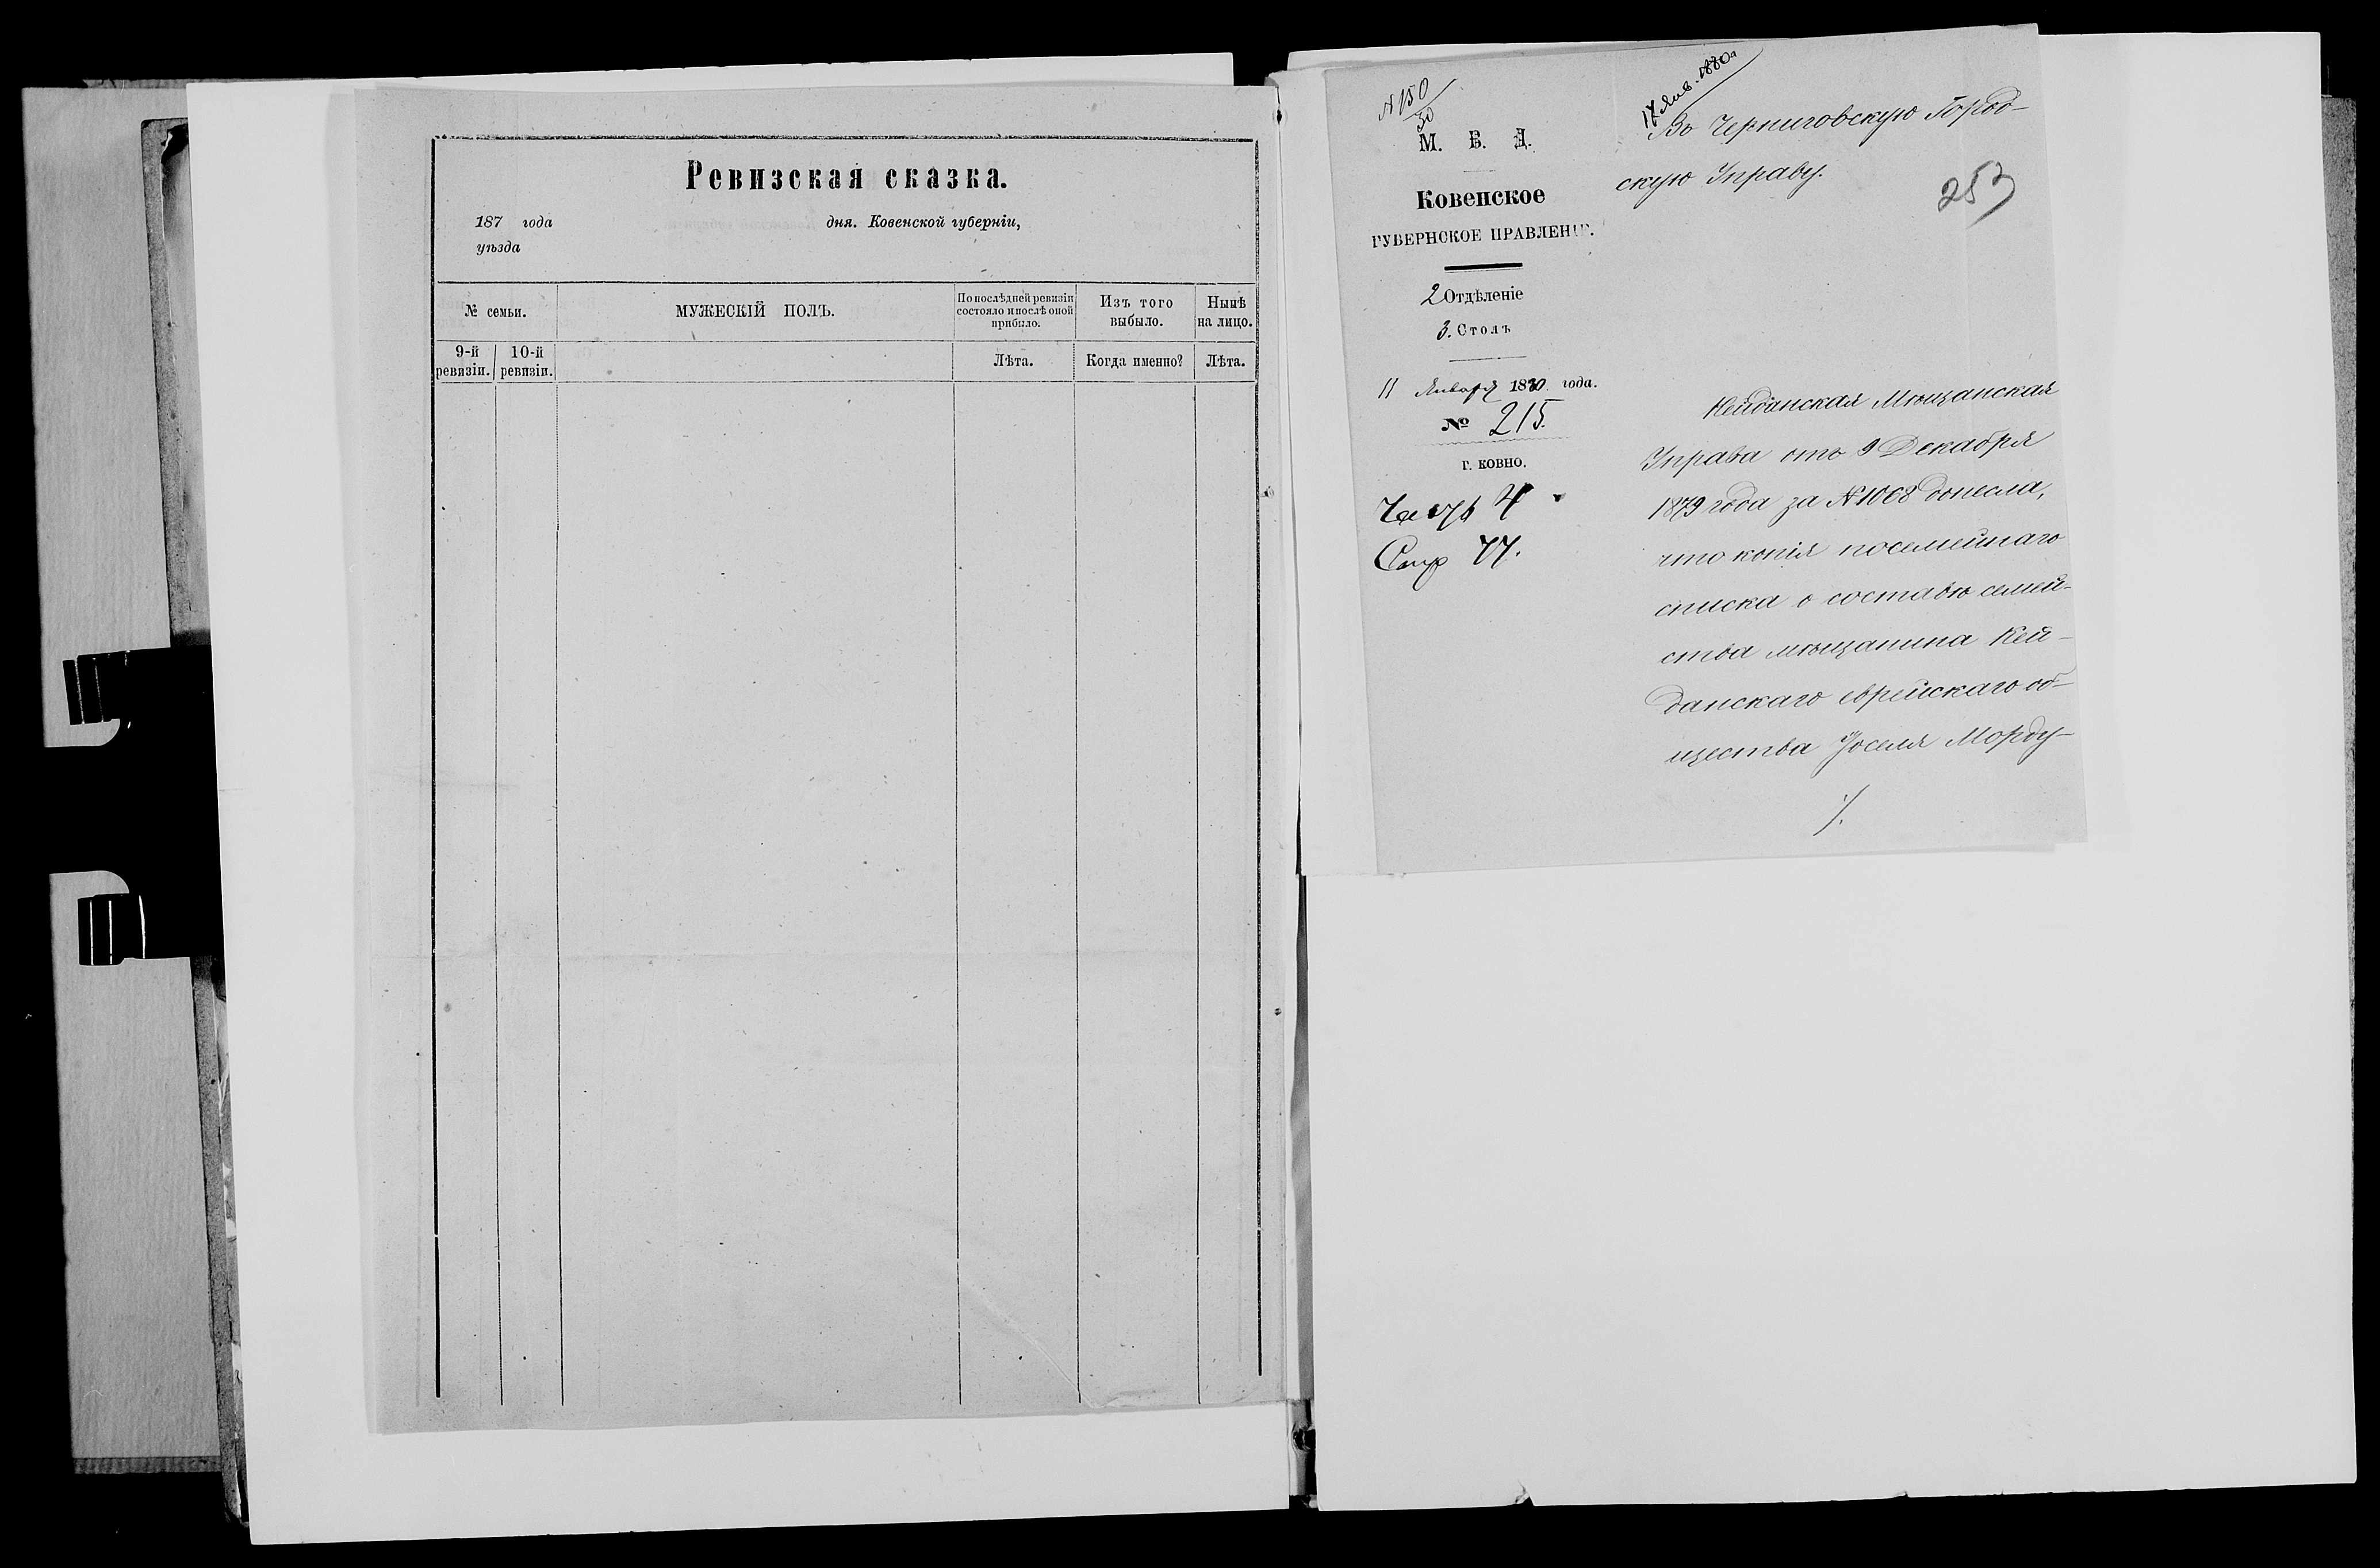 Ревизская сказка.
187 года дня. Ковенской губернiи,
уѣзда
№ семьи.
МУЖЕСКІЙ ПОЛЪ.
По послѣдней ревизіи
состояло и послѣ оной
прибыло.
Изъ того
выбыло.
Нынѣ
на лицо.
9-й
ревизіи.
10-й
ревизіи.
Лѣта.
Когда именно?
Лѣта.
№ 150
30
17 Янв. 1880
М. В. Д.
Ковенское
ГУБЕРНСКОЕ ПРАВЛЕНІЕ.
2 Отдѣленіе
3. Столъ
11 Января 1880 года.
№ 215.
Г. КОВНО.
Часть 4
Стр 77.
Въ Черниговскую Город-
скую Управу.
253
Кейданская Мѣщанская
Управа отъ 9 Декабря
1879 года за № 1068 донесла,
что копія посемейнаго
списка о составѣ семей-
ства мѣщанина Кей-
данскаго еврейскаго об-
щества Іоселя Морду-
./.